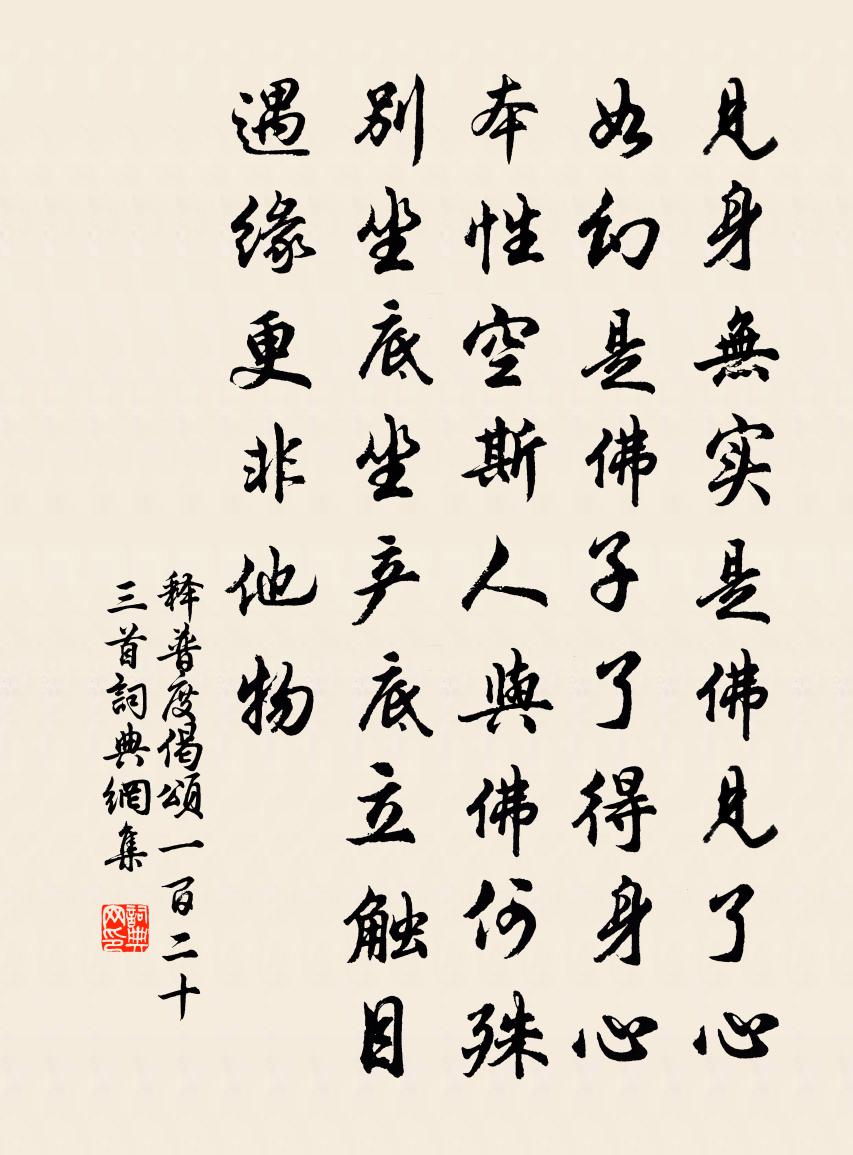 見身無实是佛見了心
如幻是佛子了得身心
本性空斯人與佛何殊
別坐底坐产底立触目
遇緣更非他物
释普度偈頌一百二十
三首詞典網集
詞典
网印